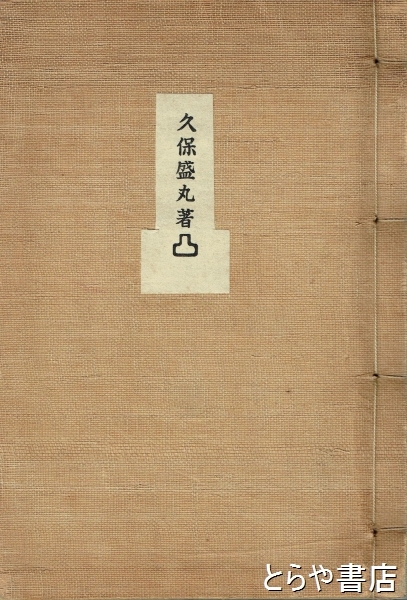 久保盛丸著
凸
とらや書店